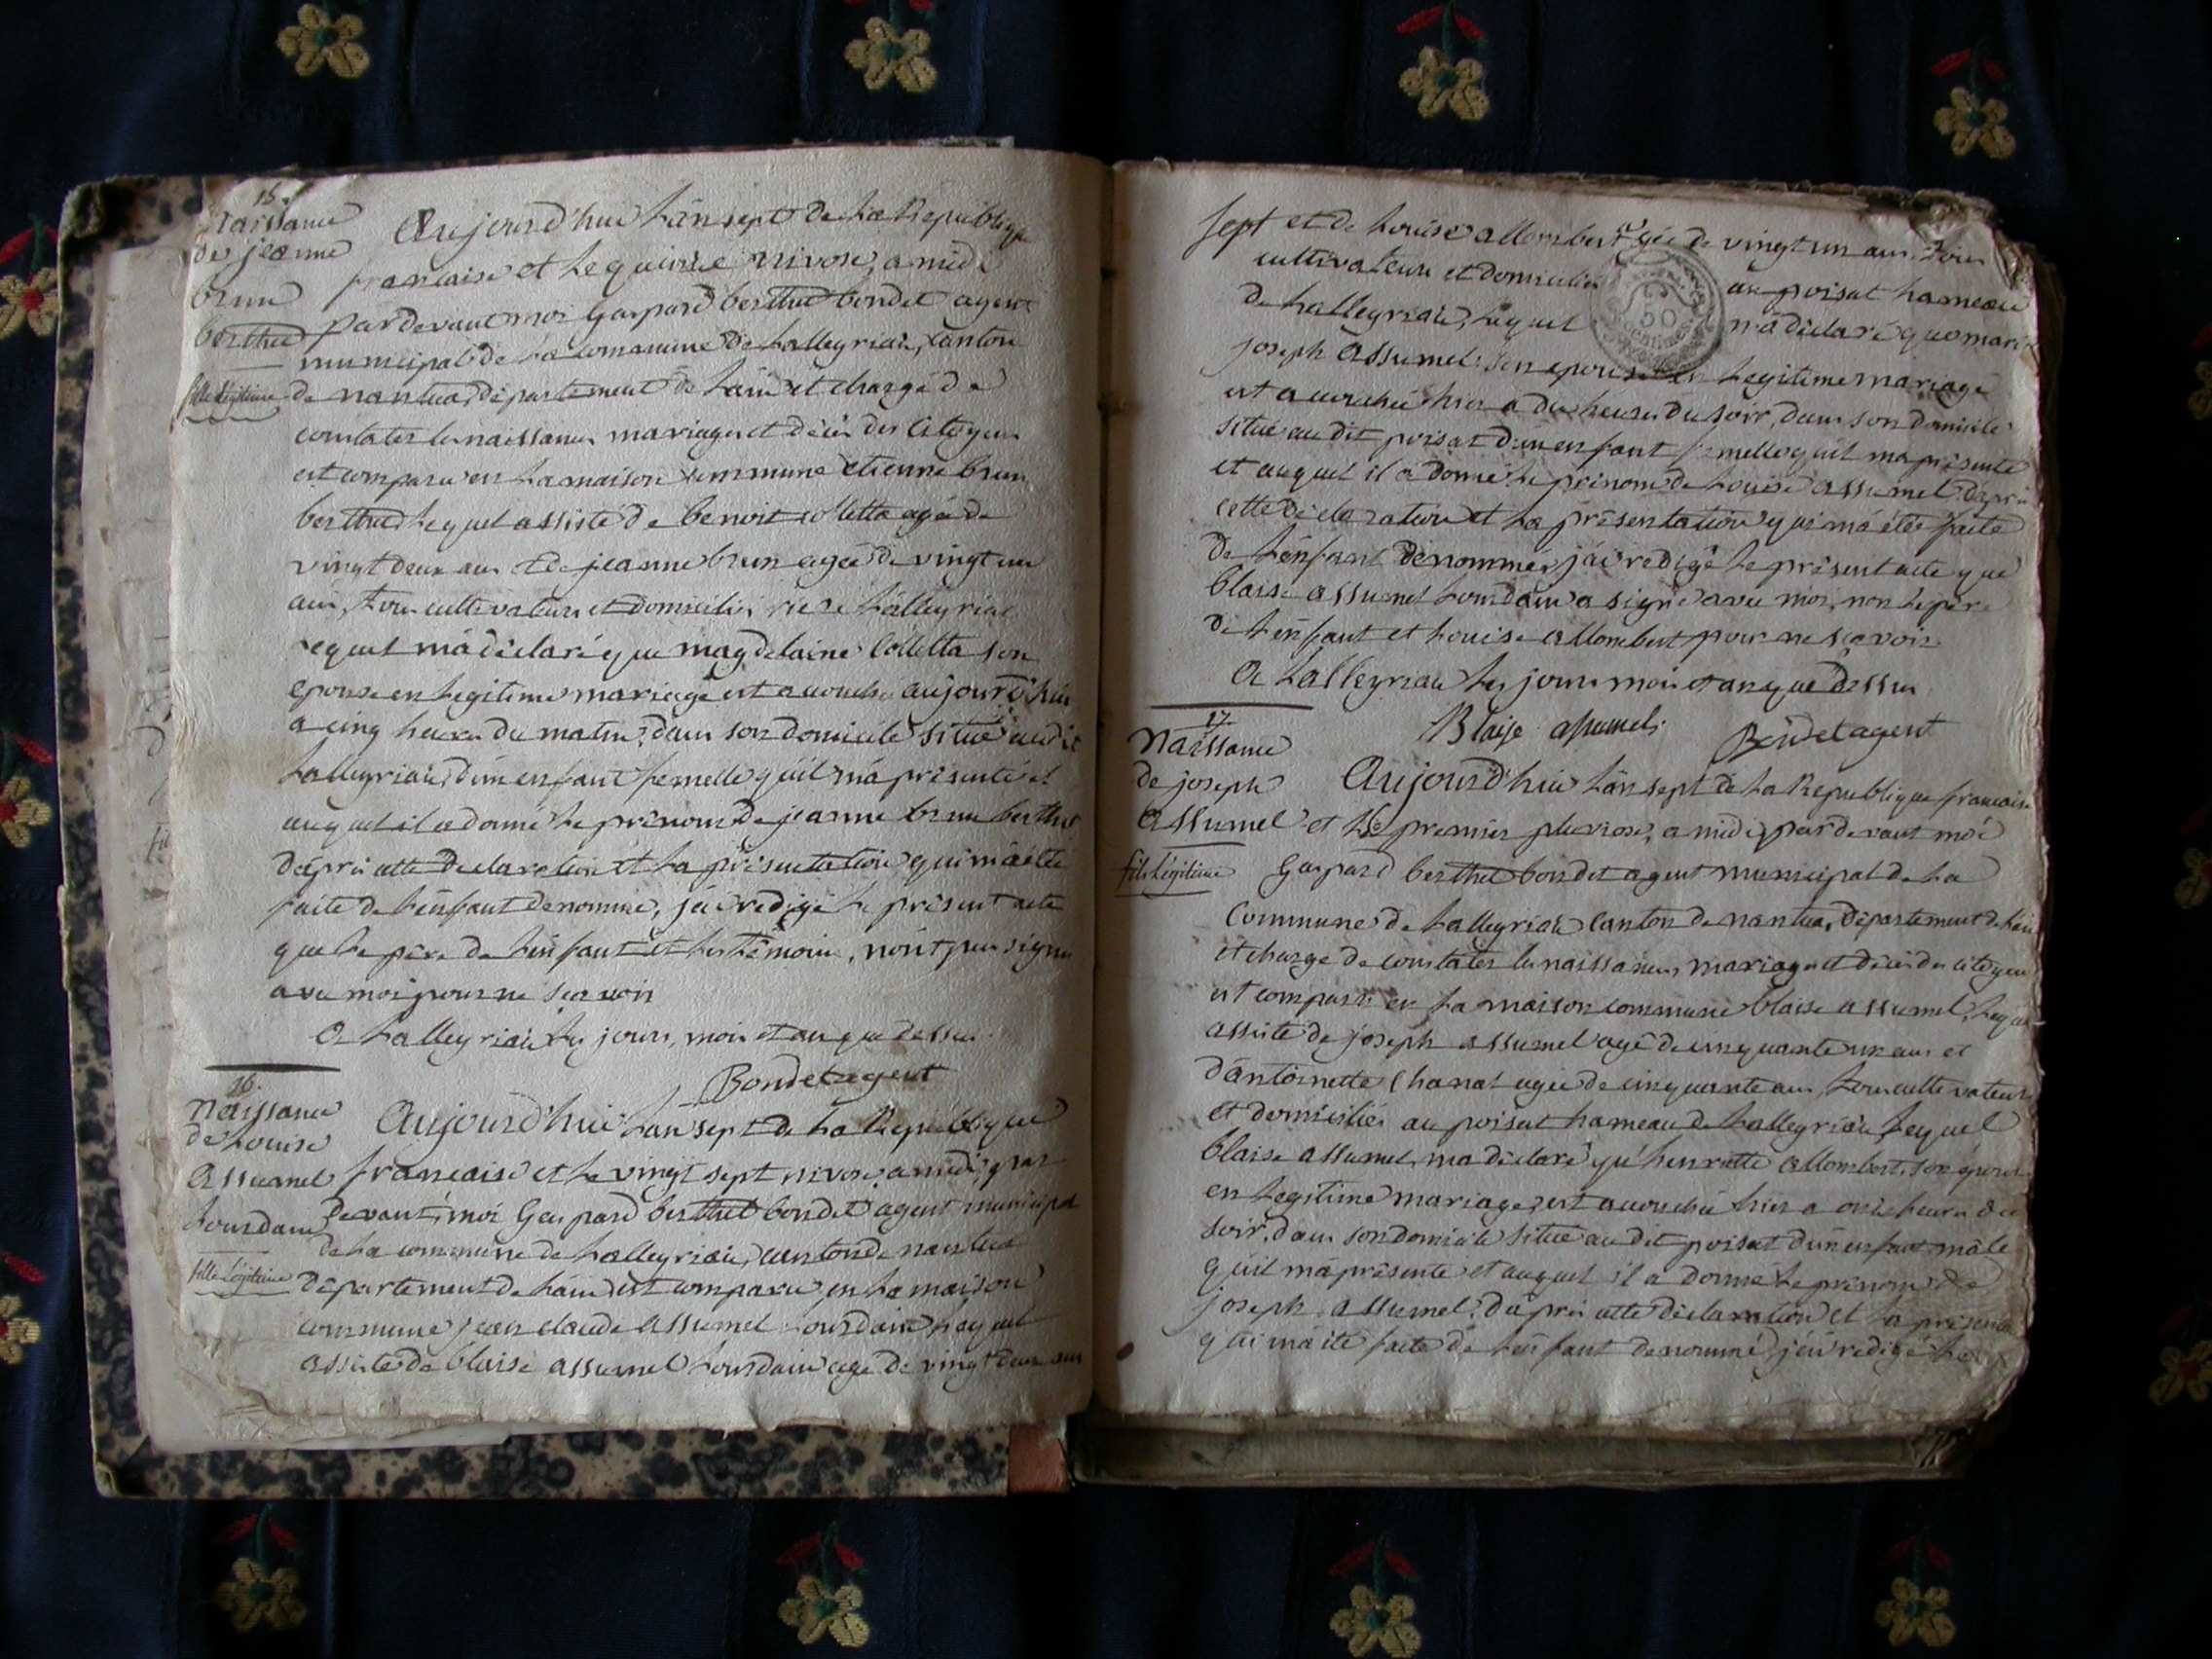 15.
Naissance
de jeanne
brun
berthet
fille légitime
Aujourd'hui L'an sept de La Republique
francaise et Le quinze nivose, a midi
pardevant moi Gaspard berthet bondet agent
municipal de La commune de Lalleyriat, canton
de nantua, département de L'ain et chargé de
constater les naissances mariages et décès des citoyens
est comparu en La maison commune etienne brun
berthet Lequel assisté de benoit colletta agé de
vingt deux ans et de jeanne brun agée de vingt un
ans, tous cultivateurs et domiciliés Lalleyriat
Lequel m'a déclaré que magdelaine Colletta son
epouse en Legitime mariage est accouchée aujourd'hui
a cinq heures du matin, dans son domicile situé audit
Lalleyriat, d'un enfant femelle qu'il m'a présenté et
auquel il a donné Le prénom de jeanne brun berthet
d'après cette declaration et La présentation qui m'a été
faite de L'enfant denommé, j'ai redigé Le présent acte
que Le père de L'enfant et Les témoins, n'ont peu signer
avec moi pour ne scavoir
a Lalleyriat Les jours, mois et an que dessus
Bondet agent
16.
Naissance
de Louise
Assumel
Lourdain
fille légitime
Aujourd'hui L'an sept de La Republique
francaise et Le vingt sept nivose, a midi, par
devant moi Gaspard berthet bondet agent municipal
de La commune de Lalleyriat, canton de nantua
département de L'ain est comparu en La maison
commune jean claude Assumel Lourdain Lequel
assisté de blaise assumel Lourdain agé de vingt deux ans
Sept et de Louise allombert agée de vingt un ans, tous
cultivateurs et domiciliés au poisat hameau
50 centimes
de Lalleyriat, Lequel m'a déclaré que marie
joseph Assumel son epouse en Legitime mariage
est accouchée hier a dix heures du soir, dans son domicile
situé au dit poisat d'un enfant femelle qu'il m'a présenté
et auquel il a donné Le prénom de Louise assumel. D'après
cette déclaration et La présentation qui m'a été faite
de L'enfant dénommé, j'ai redigé Le présent acte que
blaise assumel Lourdain a signé avec moi, non Le père
de L'enfant et Louise allombert pour ne scavoir
a Lalleyriat Les jours mois et an que dessus
Blaise assumel
Bondet agent
17.
Naissance
de joseph
Assumel
fils légitime
Aujourd'hui L'an sept de La Republique francaise
et Le premier pluviose, a midi, pardevant moi
Gaspard berthet bondet agent municipal de La
Commune de Lalleyriat canton de nantua, département de L'ain
et chargé de constater les naissances, mariages et décès des citoyens
est comparu en La maison commune blaise assumel, Lequel
assisté de joseph assumel agé de cinquante un ans et
d'antoinette Chanal agée de cinquante ans, tous cultivateurs
et domiciliés au poisat hameau de Lalleyriat, Lequel
blaise assumel, m'a déclaré qu'henriette allombert, son épouse
en Legitime mariage, est accouchée hier a onze heures du
soir, dans son domicile situé au dit poisat d'un enfant mâle
qu'il m'a présenté et auquel il a donné Le prénom de
joseph assumel. d'après cette déclaration et La présentation
qui m'a été faite de L'enfant denommé, j'ai redigé Le